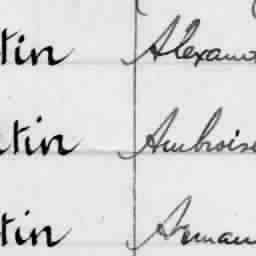 tin Alexand
tin Ambroise
tin Arman